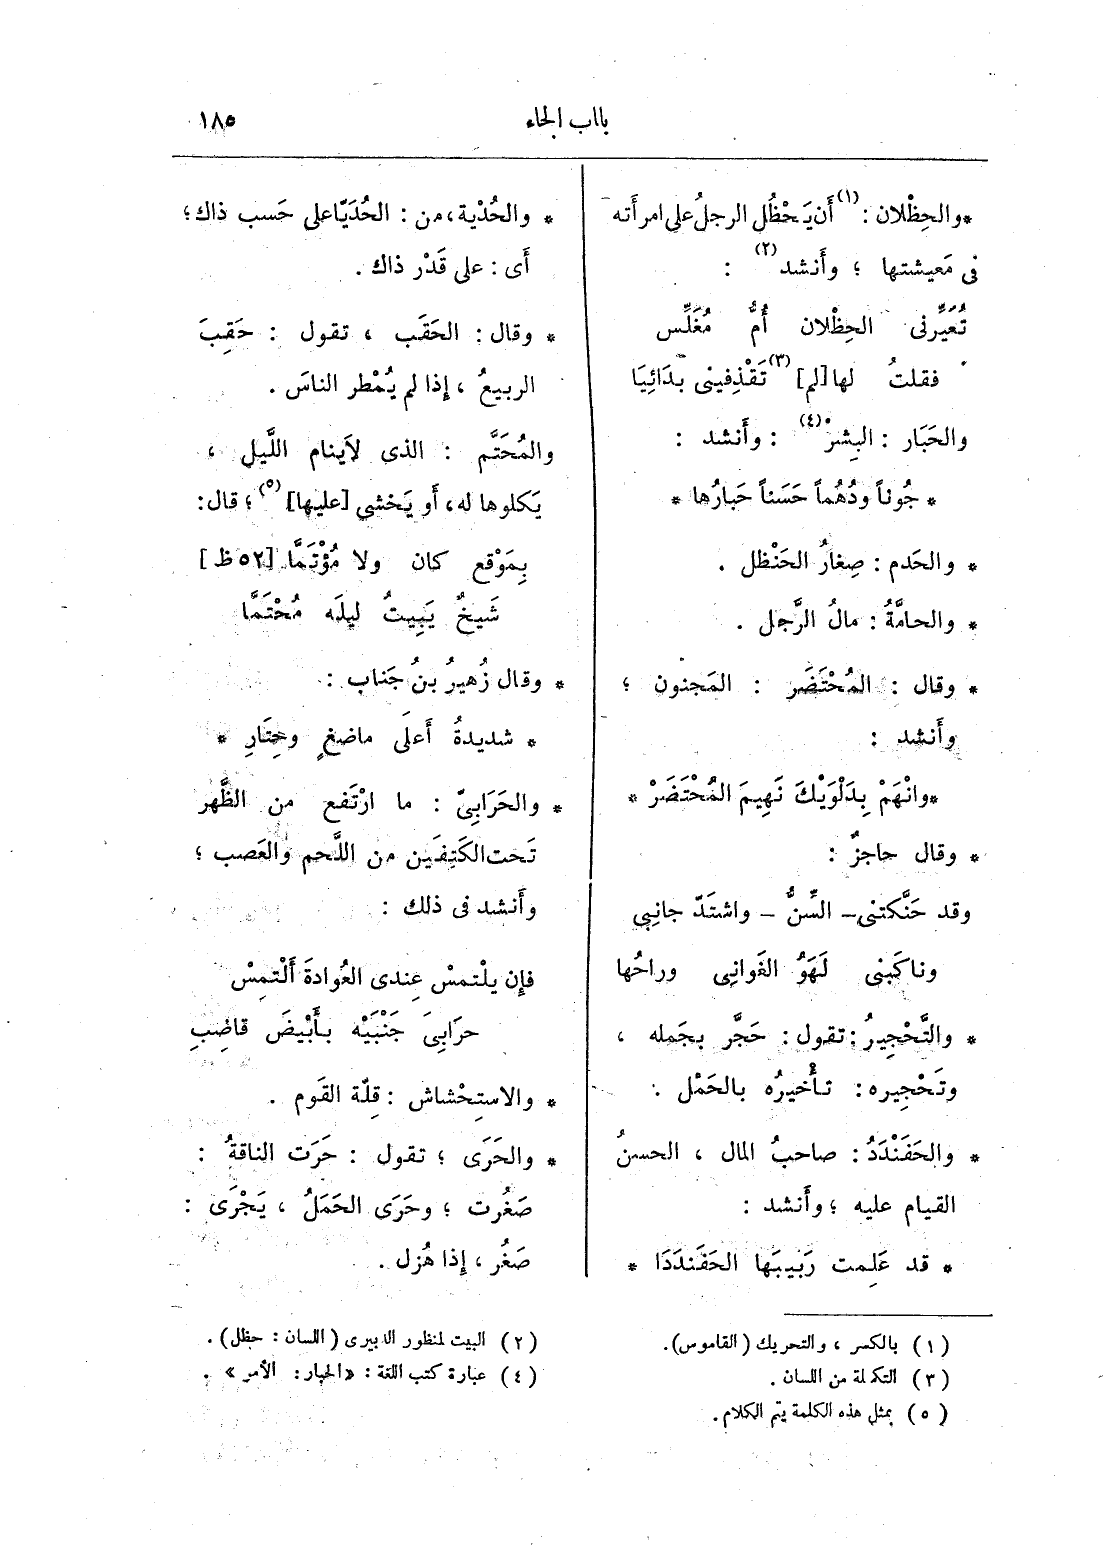 باب الحاء
١٨٥
*والحِظْلان:(١) أَن يَحْظُل الرجلُ على امرأَته
فى مَعيشتها ؛ وأَنشد(٢) :
تُعَيِّرنى الحِظْلان أُمُّ مُغَلِّس
فقلتُ لها [لم](٣) تَقْذِفينى بدَائِيَا
والحَبَار : البِشرْ(٤) : وأَنشد :
* جُوناً ودُهُماً حَسَناً حَبارُها *
* والحَدم : صِغارُ الحَنْظل .
* والحامَّةُ : مالُ الرَّجل .
* وقال : المُحْتَضَر : المَجنون ؛
وأَنشد :
*وانْهَمْ بِدَلْوَيْكَ نَهِيمَ المُحْتَضَرْ *
* وقال حاجزٌ :
وقد حَنَّكتنى – السِّنُّ – واشتَدّ جانِبِي
وناكَبنى لَهَوُ الغَوانِى وراحُها
* والتَّحْجِيرُ : تقول : حَجَّر بجَمله ،
وتَحْجِيره : تأْخيرُه بالحَمْل .
* والحَفَنْدَدُ : صاحبُ المال ، الحسنُ
القيام عليه ؛ وأَنشد :
* قد عَلِمت رَبيبَها الحَفَندَدَا *
* والحُدْية ، من : الحُدَيَّا على حَسب ذاك ؛
أَى : على قَدْر ذاك .
* وقال : الحَقَب ، تقول : حَقِبَ
الربيعُ ، إِذا لم يُمْطر الناسَ .
والمُحَتَّم : الذى لاَينام اللَّيل ،
يَكلوها له، أَو يَخشى [عليها](٥) ؛ قال:
بِمَوْقع كان ولا مُؤْتَمَّا [٥٢ظ]
شَيخٌ يَبِيتُ ليلَه مُحْتَمَّا
* وقال زُهيرُ بنُ جَناب :
* شديدةُ أَعلَى ماضغٍ وحِتَارِ *
* والحَرَابِىّ : ما ارْتَفع من الظَّهر
تَحت الكَتِفَين من اللَّحم والعَصب ؛
وأَنشد فى ذلك :
فإِن يلْتمسْ عِندى العُوادةَ أَلْتمِسْ
حرَابِىَ جَنْبَيْه بأَبْيضَ قاضِبِ
* والاستِحْشاش : قِلّة القَوم .
* والحَرَى ؛ تقول : حَرَت الناقةُ :
صَغُرت ؛ وحَرَى الحَمَلُ ، يَحْرَى :
صَغُر ، إِذا هُزل .
(١) بالكسر ، والتحريك (القاموس).
(٢) البيت لمنظور الدبيرى (اللسان : حظل) .
(٣) التكملة من اللسان .
(٤) عبارة كتب اللغة : «الحبار : الأمر» .
(٥) بمثل هذه الكلمة يتم الكلام.